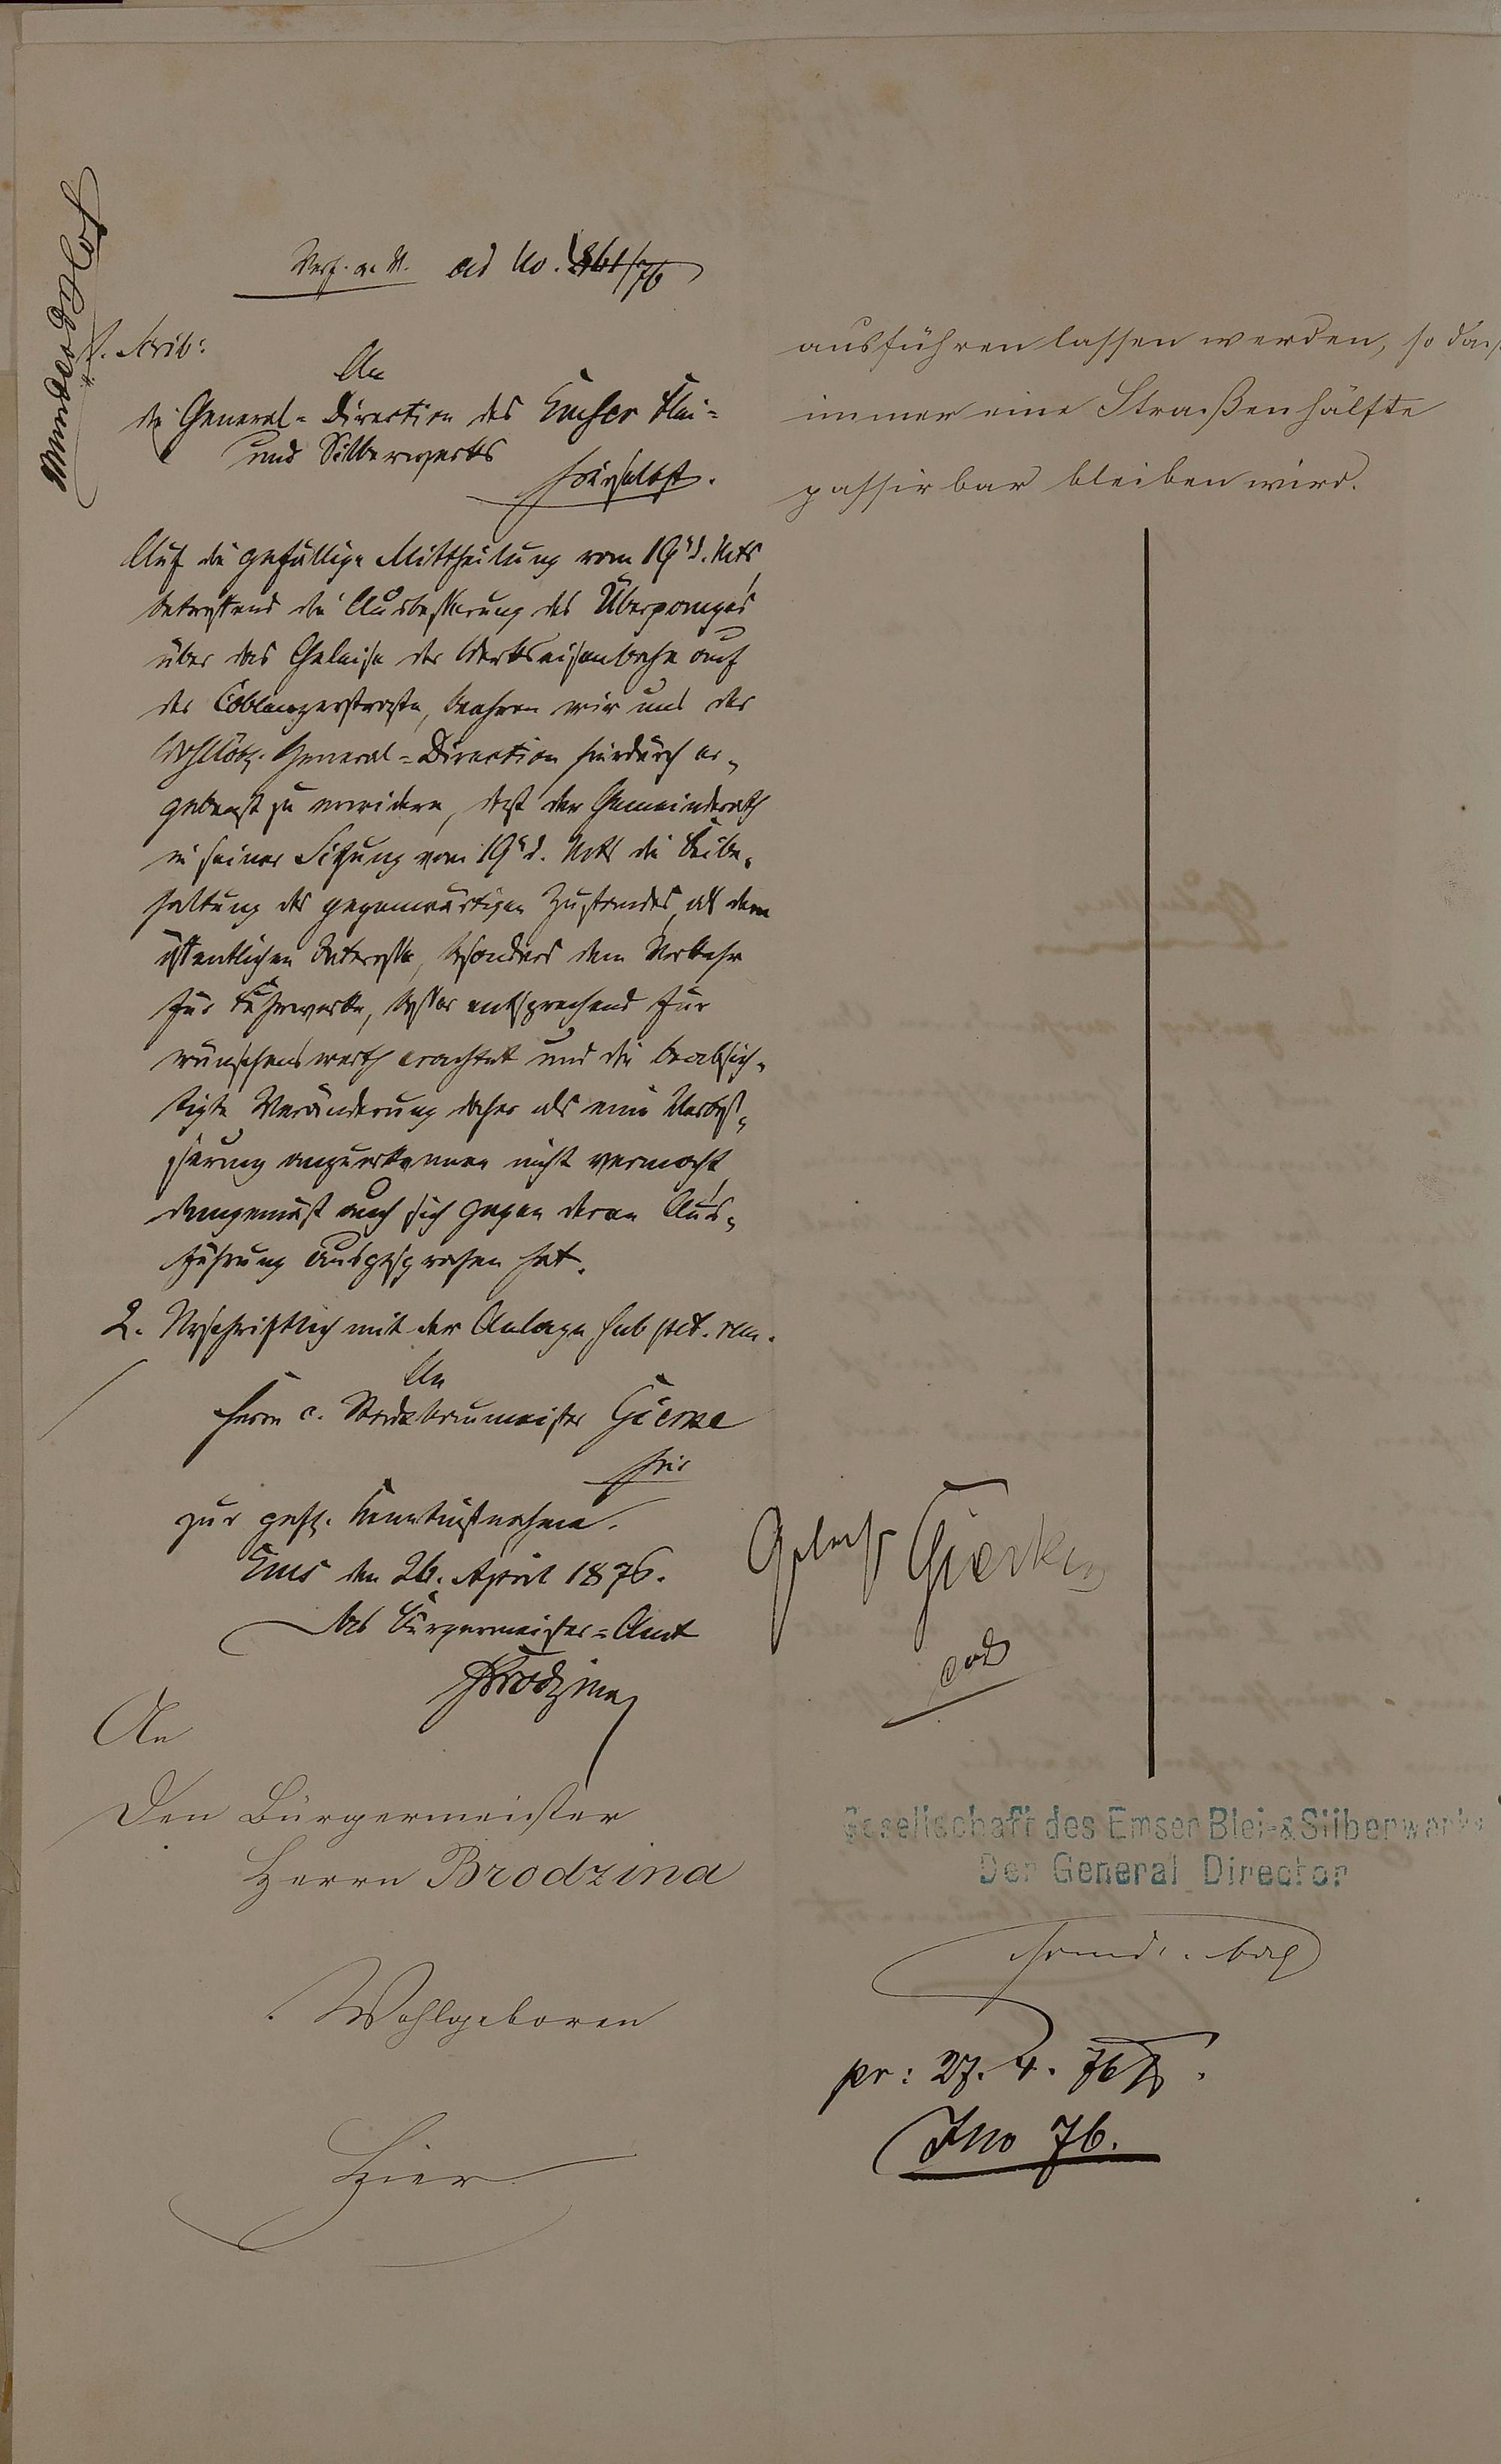 ad No. 861/76
1. Scrib:
An
die General-Direction des Emser Blei-
und Silberwerks
hierselbst.
Auf die gefällige Mittheilung vom 19t d. Mts,
betreffend die Ausbesserung des Überganges
über das Geleise der Werkseisenbahn auf
der Coblenzerstraße, beehren wir uns der
Wohllöbl. General-Direction hierdurch er-
gebenst zu erwidern, daß der Gemeinderath
in seiner Sitzung vom 19t d. Mts die Beibe-
haltung des gegenwärtigen Zustandes, als dem
öffentlichen Interesse, besonders dem Verkehr
für Fuhrwerke, besser entsprechend für
wünschenswerth erachtet und die beabsich-
tigte Veränderung daher als eine Verbes-
serung anzuerkennen nicht vermocht,
demgemäß auch sich gegen deren Aus-
führung ausgesprochen hat.
2. Urschriftlich mit der Anlage sub pet. rem.
An
Herrn c. Stadtbaumeister Gierke
hier
zur gefl. Kenntnißnahme.
Ems den 26. April 1876.
Das Bürgermeister-Amt
Brodzina
An
Den Bürgermeister
Herrn Brodzina
Wohlgeboren
Hier
ausführen lassen werden, so daß
immer eine Straßenhälfte
passirbar bleiben wird.
Gelesen Gierke
eod
Gesellschaft des Emser Blei-& Silberwerks
Der General Director
pr: 27. 4. 76
Jno 76.